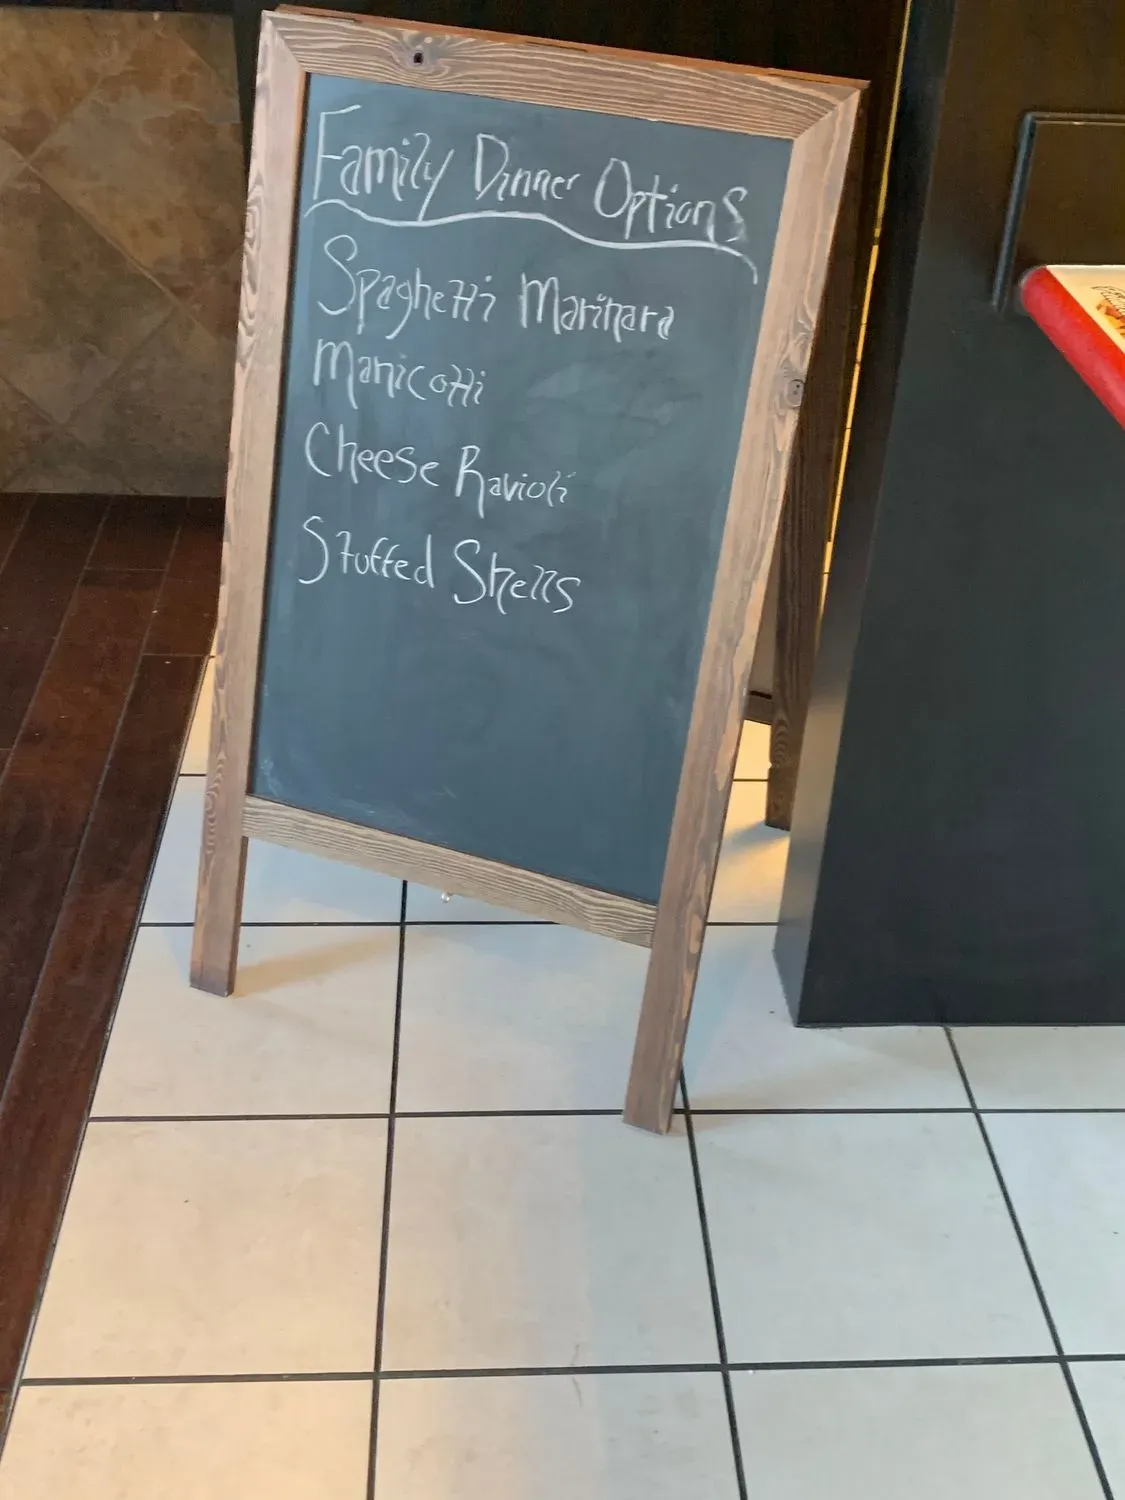 Family Dinner Options
Spaghetti Marinara
Manicotti
Cheese Ravioli
Stuffed Shells